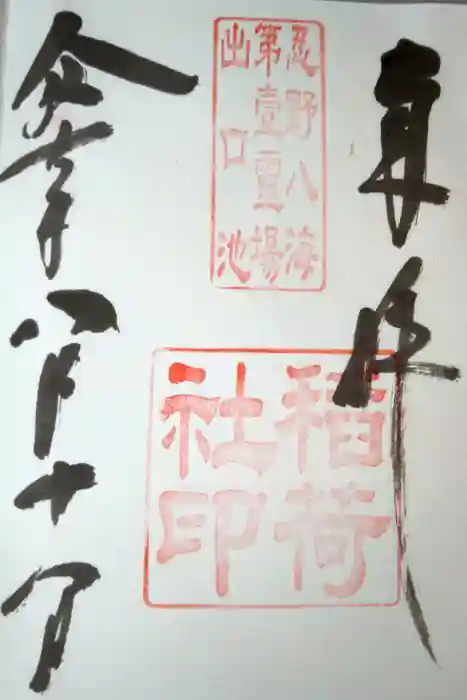 奉拝
忍野八海
第壹霊場
出口池
稲荷
社印
八月十